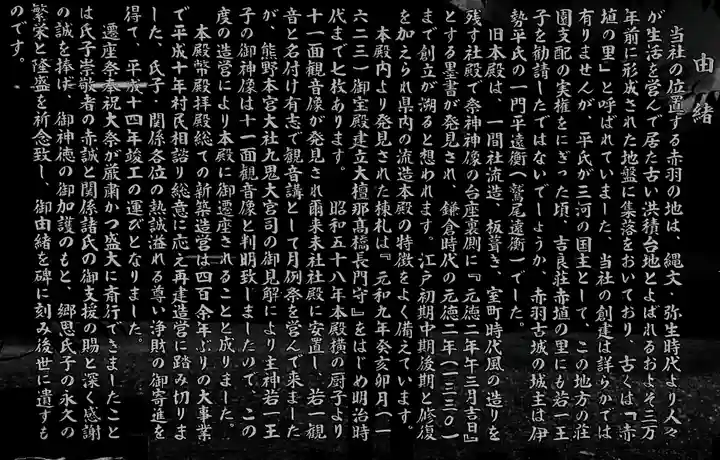 由緒
当社の位置する赤羽の地は、縄文・弥生時代より人々
が生活を営んで居た古い洪積台地とよばれるおよそ三万
年前に形成された地盤に集落をおいており、古くは『赤
埴の里』と呼ばれていました。当社の創建は詳らかでは
有りませんが、平氏が三河の国主として、この地方の荘
園支配の実権をにぎった頃、吉良荘赤埴の里にも若一王
子を勧請したではないでしょうか、赤羽古城の城主は伊
勢平氏の一門平遠衡（鷲尾遠衡）でした。
旧本殿は、一間社流造、板葺き、室町時代風の造りを
残す社殿で祭神神像の台座裏側に『元徳二年午三月吉日』
とする墨書が発見され、鎌倉時代の元徳二年（一三三〇）
まで創立が溯ると想われます。江戸初期中期後期と修復
を加えられ県内の流造本殿の特徴をよく備えています。
本殿内より発見された棟札は『元和九年癸亥卯月（一
六二三）御宝殿建立大檀那髙橋長門守』をはじめ明治時
代まで七枚あります。 昭和五十八年本殿横の厨子より
十一面観音像が発見され爾来末社社殿に安置し、若一観
音と名付け有志で観音講として月例祭を営んで来ました
が、熊野本宮大社九鬼大宮司の御見解により主神若一王
子の御神像は十一面観音像と判明致しましたので、この
度の造営により本殿に御遷座されることと成りました。
本殿幣殿拝殿総ての新築造営は四百余年ぶりの大事業
で平成十年村民相諮り総意に応え再建造営に踏み切りま
した、氏子・関係各位の熱誠溢れる尊い浄財の御寄進を
得て、平成十四年竣工の運びとなりました。
遷座祭奉祝大祭が厳粛かつ盛大に斎行できましたこと
は氏子崇敬者の赤誠と関係諸氏の御支援の賜と深く感謝
の誠を捧げ 御神徳の御加護のもと、郷恩氏子の永久の
繁栄と隆盛を祈念致し、御由緒を碑に刻み後世に遺すも
のです。